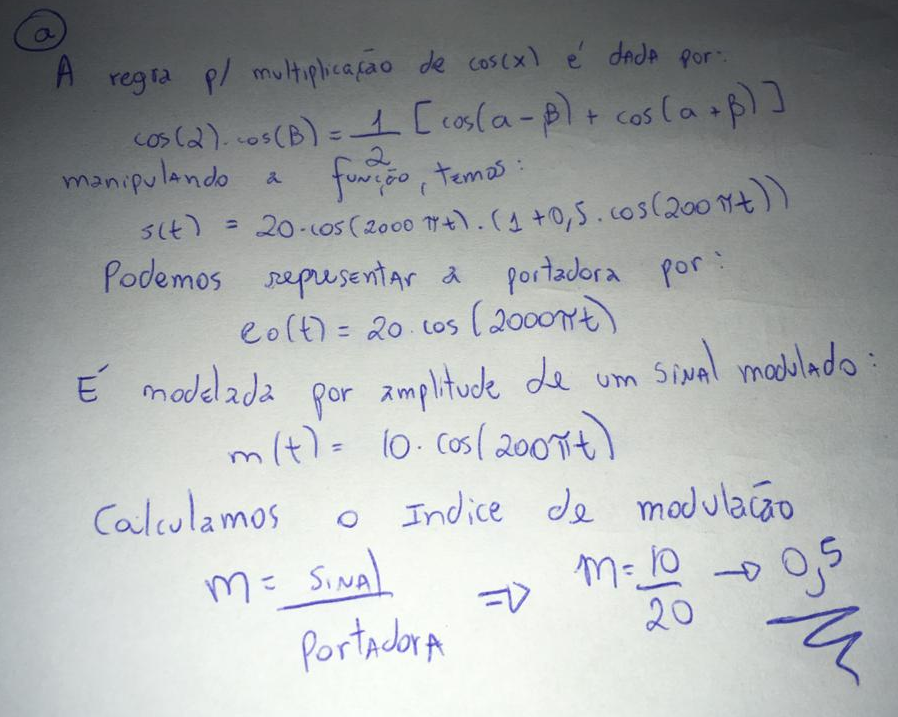 a
A regra p/ multiplicação de cos(x) é dada por:
cos(2).cos(B) = 1/2 [cos(a - β) + cos(a + β)]
manipulando a função, temos:
s(t) = 20.cos(2000 πt).(1+0,5.cos(200πt))
Podemos representar a portadora por:
eo(t) = 20.cos(2000πt)
É modelada por amplitude de um sinal modulado:
m(t) = 10.cos(200πt)
Calculamos o Indice de modulação
m = Sinal/Portadora => m = 10/20 → 0,5